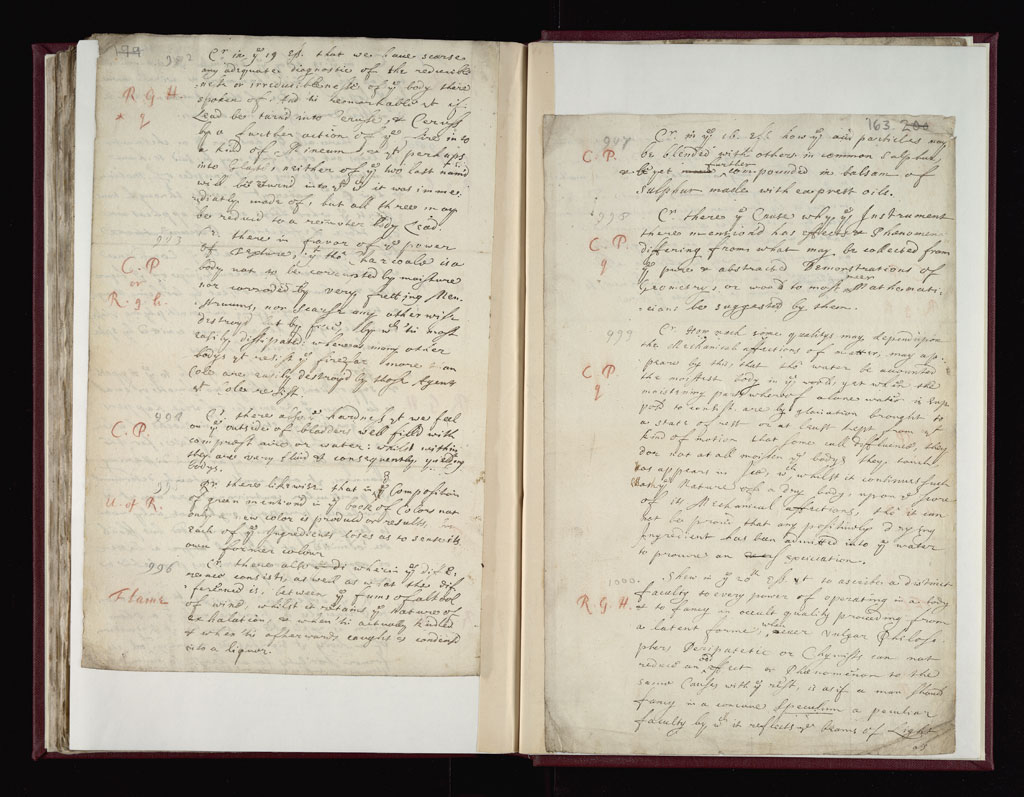 199
992
Cr. in ye 19 Ess. that we have scarse
any adequate diagnostic of the reducible
ness or irreducibleness of ye body there
R. G. H.
spoken of. And tis remarkable yt if
Lead be turnd into Ceruse, & Ceruss
by a further action of ye fire into
a kind of Minium, & yt perhaps
into Glass, neither of ye two last namd
will be turnd into yt it was imme
diatly made of, but all three may
be reducd to a remoter body Lead.
993
there in favor of ye power
of Texture, yt tho Charcoale is a
C. P.
body not to be corrupted by moisture
or
nor corroded by very fretting Men
R. g. h.
struums, nor scarse any otherwise
destroyd but by fire, by wch tis most
easily dissipated: whereas many other
bodys yt resist ye fire far more than
Cole are easily destroyd by those Agents
yt Cole resist.
994
Cr. there also ye hardness yt we feel
C. P.
on ye outside of bladders well filled with
comprest aire or water: whilst within
they are very fluid & consequently yielding
bodys.
995
Cr. there likewise that in ye Composition
U. of R.
of green mentiond in ye book of Colors not
only a new color is producd or results,
each of ye Ingredients loses as to sense its
own former colour
996
Cr. there also wherein ye dif
consists as well as what the dif
Flame
ference is, between ye fume of alcool
of wind, whilst it retains ye Nature of
exhalation, & when tis actually kindled
& when tis afterwards caught & condensd
into a liquor.
163 200
997
Cr. in ye 16. Ess. how ye particles may
C. P.
be blended with others in common Sulphur,
& be yet further compounded in balsam of
Sulphur made with exprest oils.
998
Cr. there ye Cause why ye Instrument
there mentiond has effects & Phænomen
C. P.
differing from what may be collected from
q
ye pure & abstracted Demonstrations of
Geometry, or woud to most meer Mathemati
cians be suggested by them.
999
Cr. How much some qualitys may depend upon
the Mechanical affections of matter, may ap
C. P.
peare by this, that tho water be accounted
q
the moistest body in ye world, yet when the
moistning parts whereof alone water is sup
posd to consist, are by glaciation brought to
a state of rest or at least kept from yt
kind of motion that some call diffluence, they
doe not at all moisten ye bodys they touch,
as appears in Ice, wch whilst it continues such
has ye Nature of a Dry body, upon ye score
of its Mechanical affections, tho it can
not be provd that any positively Drying
Ingredient has been admitted into ye water
to procure an exsiccation.
1000.
Shew in ye 20th Ess. yt to ascribe a distinct
R. G. H.
faculty to every power of operating in a body
& to fancy an occult quality proceeding from
a latent forme, when ever vulgar Philoso
phers Peripatetic or Chymists can not
reduce an effect or Phænomenon to the
same Causes with ye rest, is as if a man should
fancy in a concave speculum a peculiar
faculty by wch it reflects ye beams of Light
as